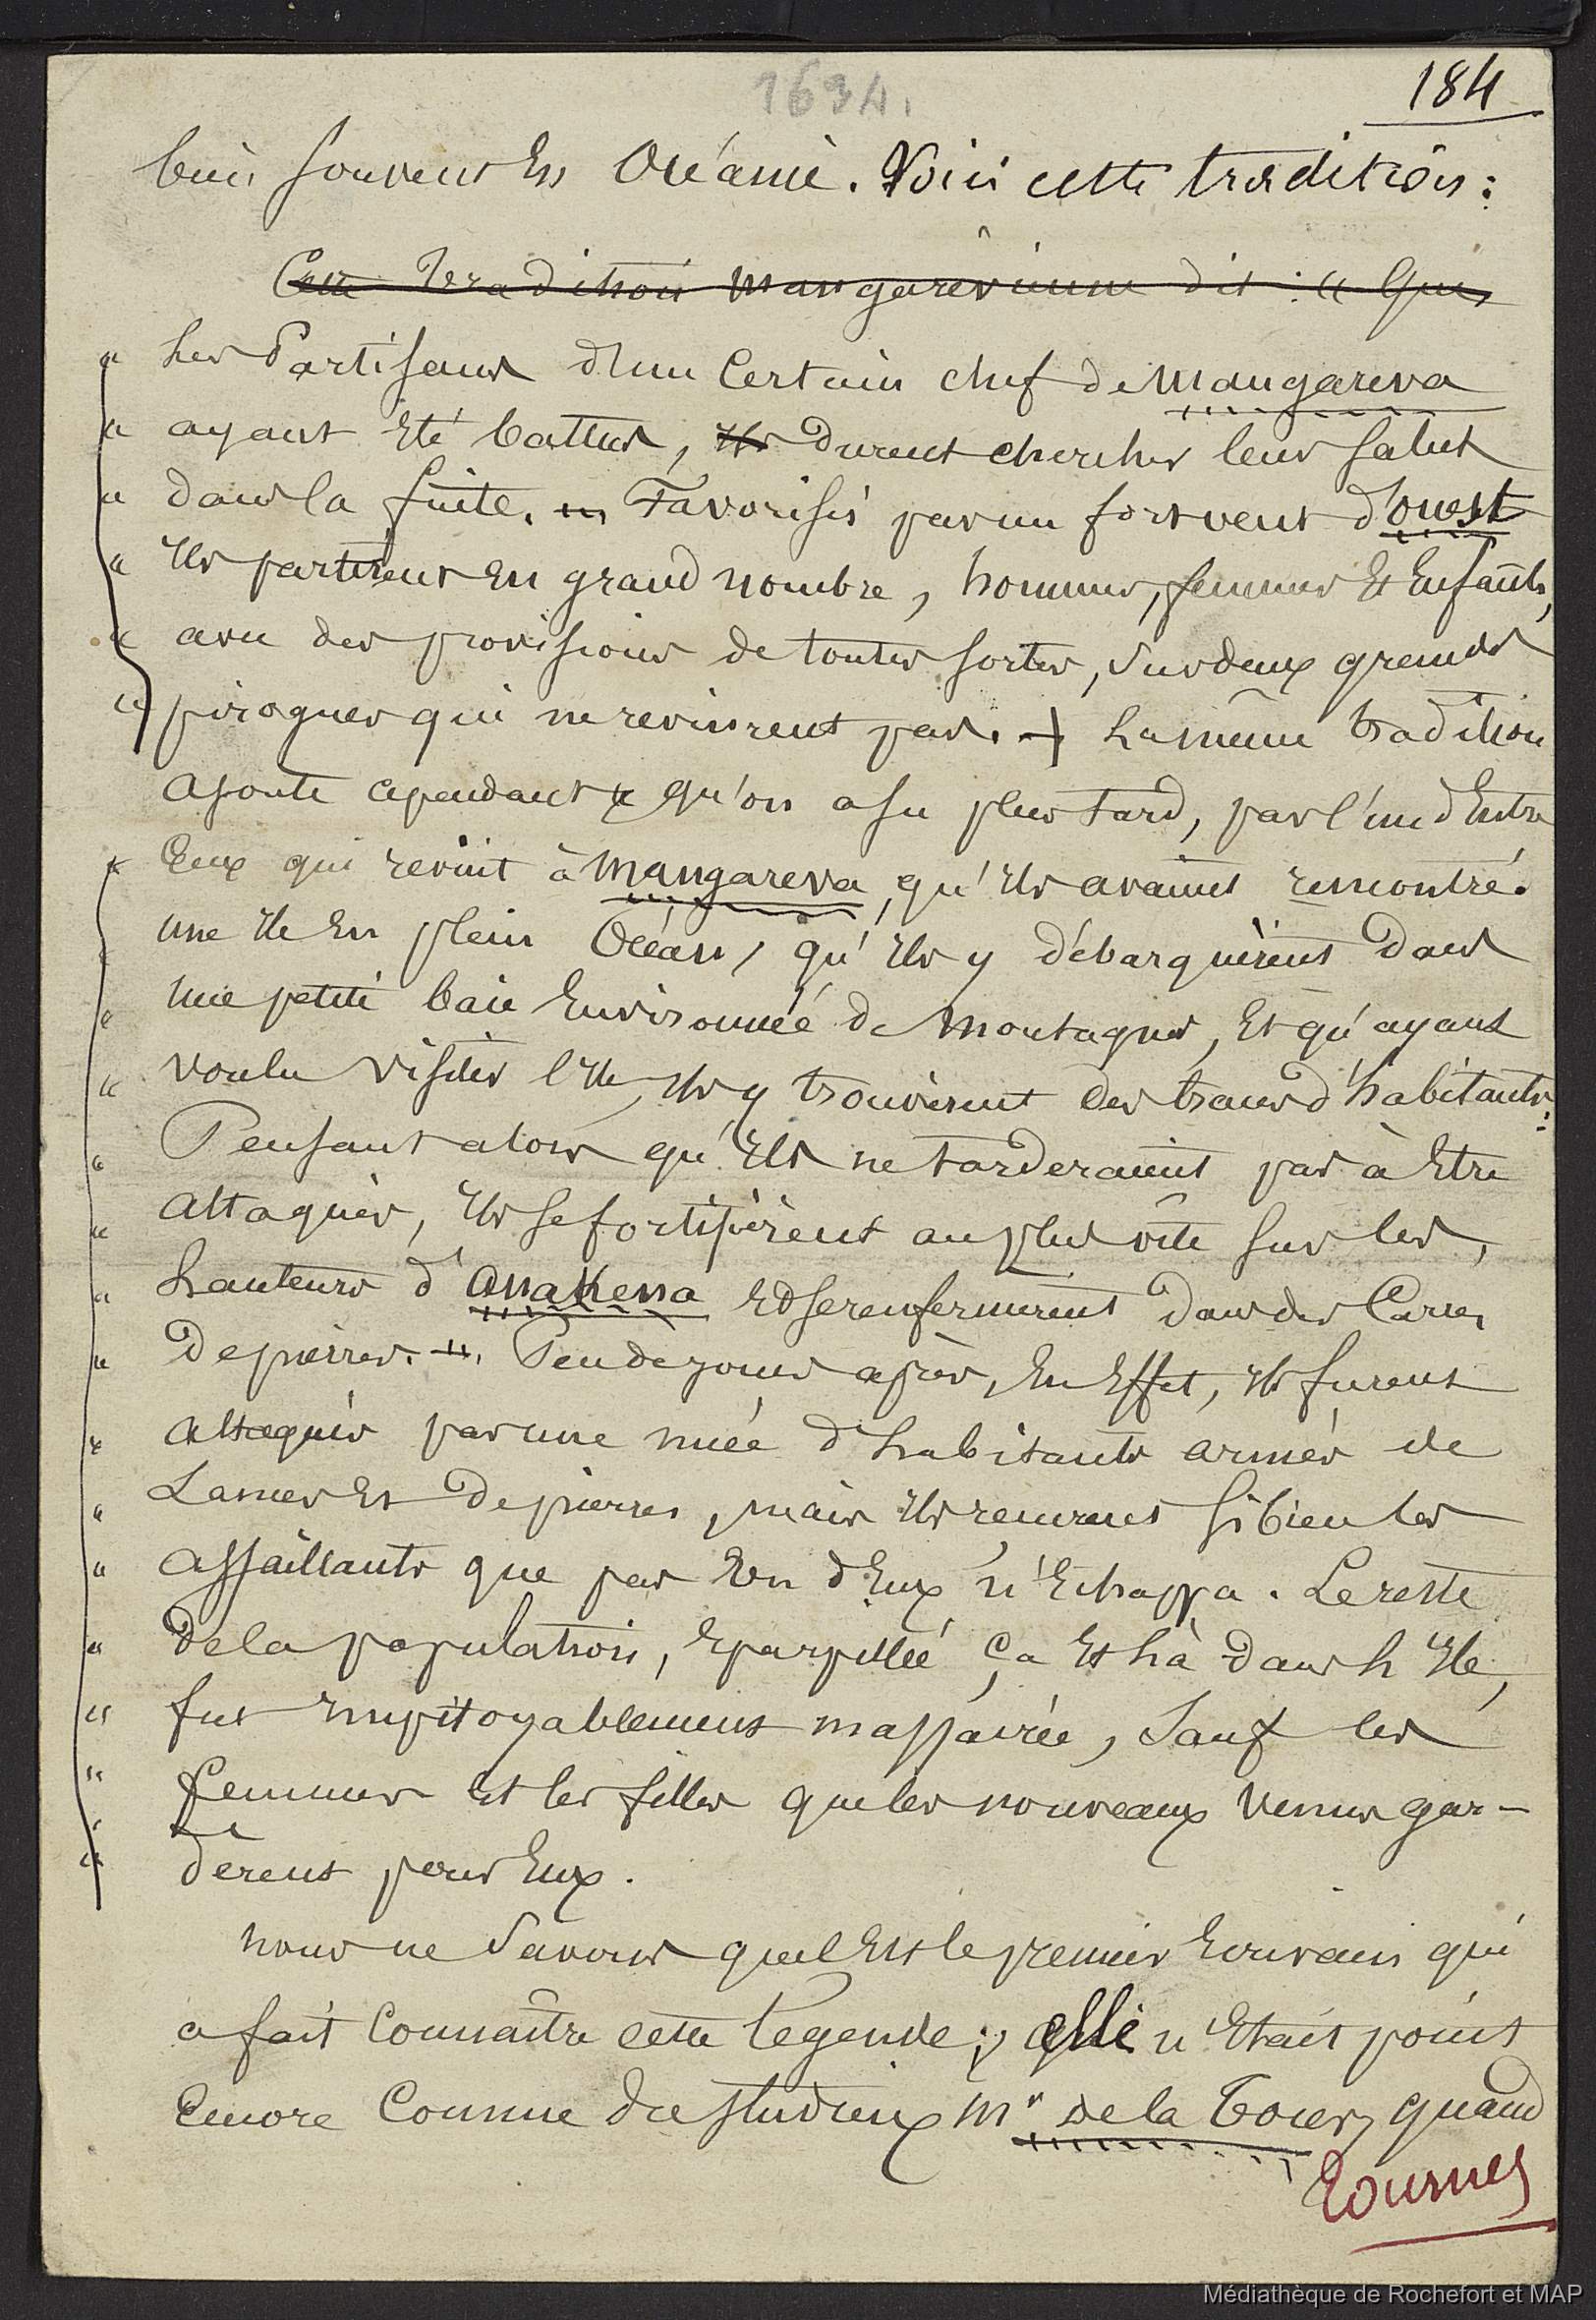 1634.
184
bien souvent en Océanie. Voici cette tradition :
Cette tradition mangarévienne dit : « Que
" Les Partisans d'un certain chef de Mangareva
" ayant été battus, ils durent chercher leur salut
" dans la fuite. — Favorisés par un fort vent d'ouest
" ils partirent en grand nombre, hommes, femmes et enfants,
" avec des provisions de toutes sortes, sur deux grandes
" pirogues qui ne revinrent pas. + La même tradition
ajoute cependant qu'on a su plus tard, par l'un d'entre
" eux qui revint à Mangareva, qu'ils avaient rencontré
" une île en plein Océan, qu'ils y débarquèrent dans
" une petite baie environnée de montagnes, et qu'ayant
" voulu visiter l'île, ils y trouvèrent des traces d'habitants :
" Pensant alors qu'ils ne tarderaient pas à être
" attaqués, ils se fortifièrent au plus vite sur les
" hauteurs d'Anakena et se renfermèrent dans des Carrés
" de pierres. — Peu de jours après, en effet, ils furent
" attaqués par une nuée d'habitants armés de
" Lances et de pierres, mais ils reçurent si bien les
" assaillants que pas un d'eux n'échappa. Le reste
" de la population, éparpillée çà et là dans l'île,
" fut impitoyablement massacrée, sauf les
" femmes et les filles que les nouveaux venus gar-
" dèrent pour eux.
Nous ne savons quel est le premier écrivain qui
a fait connaître cette légende ; elle n'était point
encore connue du studieux Mr de la Tour, quand
Tournez
Médiathèque de Rochefort et MAP